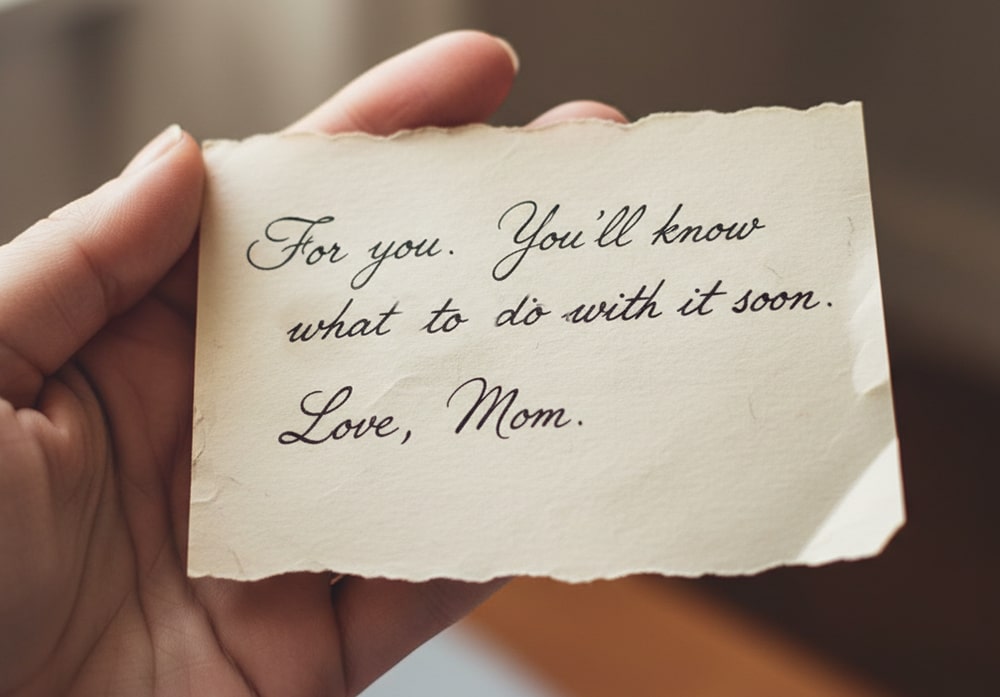 For you. You'll know
what to do with it soon.
Love, Mom.